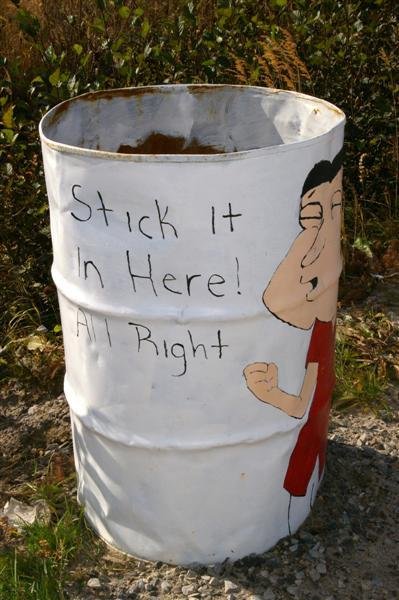 Stick It
In Here!
All Right